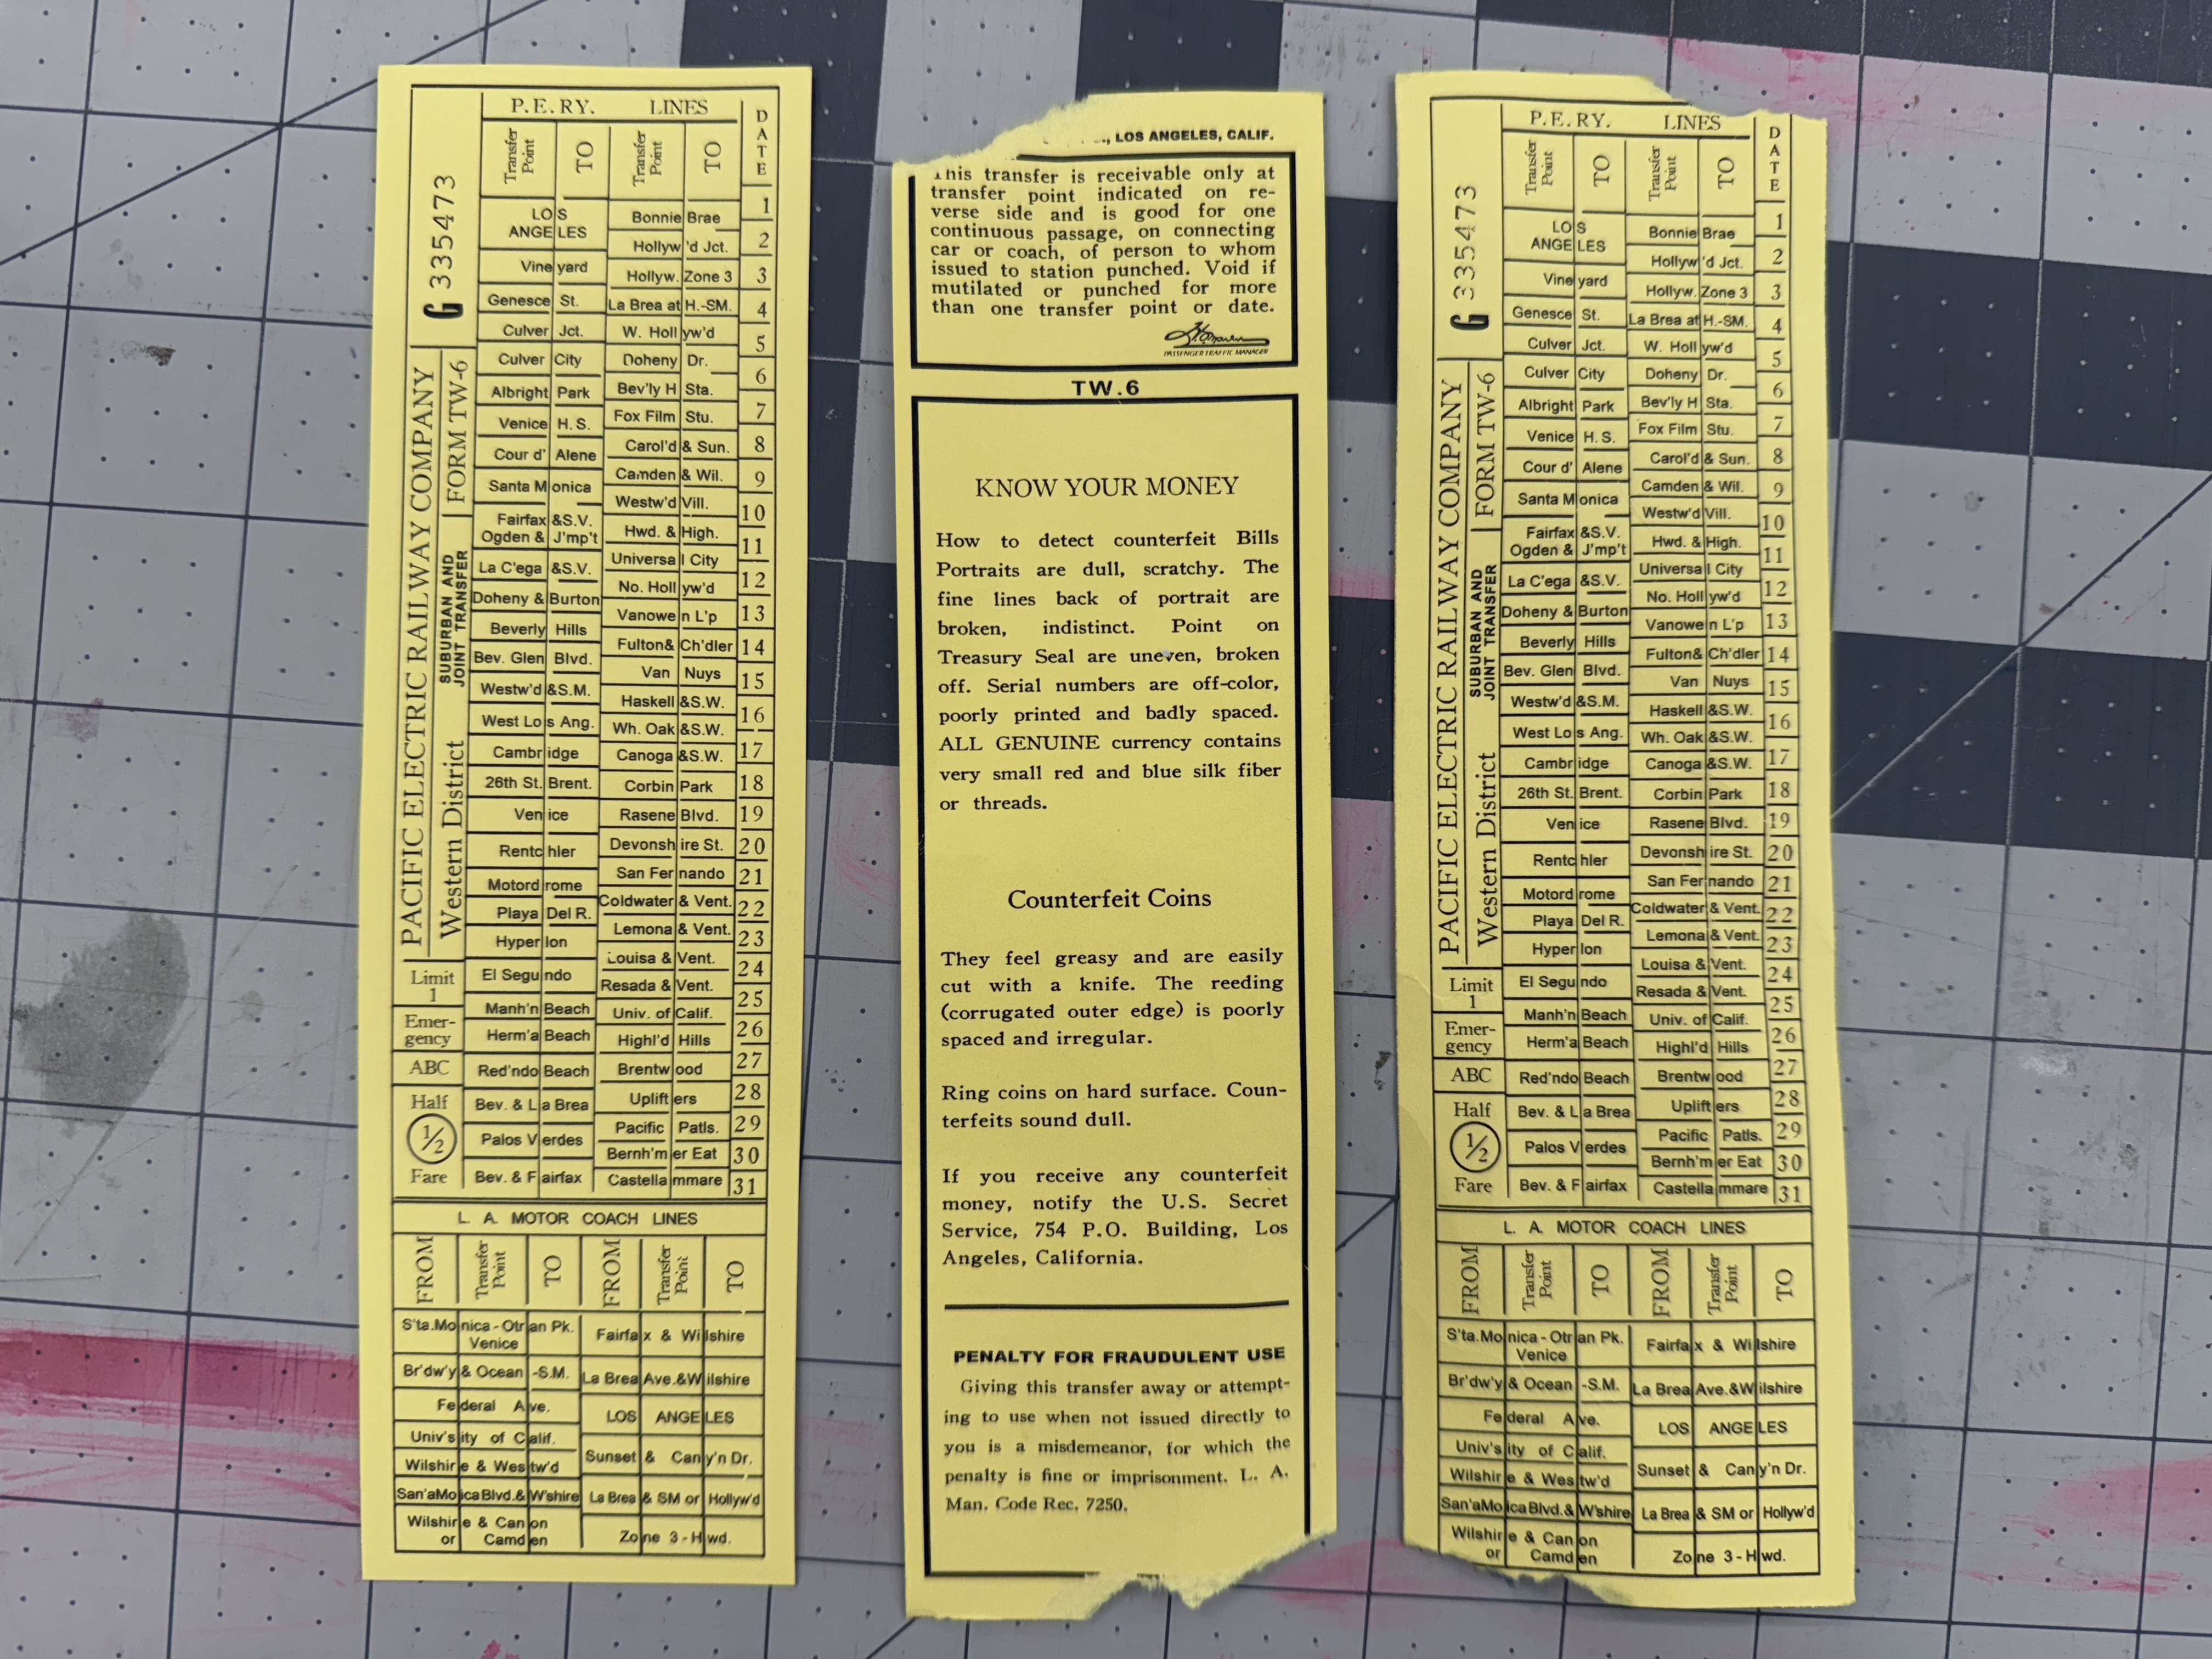 P.E.RY. LINES
Transfer Point TO Transfer Point TO DATE
G 335473
PACIFIC ELECTRIC RAILWAY COMPANY
FORM TW-6
SUBURBAN AND
JOINT TRANSFER
Western District
LOS ANGELES Bonnie Brae 1
Hollyw'd Jct. 2
Vineyard Hollyw. Zone 3 3
Genesce St. La Brea at H.-SM. 4
Culver Jct. W. Hollyw'd 5
Culver City Doheny Dr. 6
Albright Park Bev'ly H Sta. 7
Venice H.S. Fox Film Stu. 8
Cour d' Alene Carol'd & Sun. 9
Santa Monica Camden & Wil. 10
Westw'd Vill.
Fairfax &S.V. Hwd. & High. 11
Ogden & J'mp't
La C'ega &S.V. Universal City 12
Doheny & Burton No. Hollyw'd 13
Beverly Hills Vanowen L'p 14
Bev. Glen Blvd. Fulton& Ch'dler 15
Westw'd &S.M. Van Nuys 16
West Los Ang. Haskell &S.W. 17
Cambridge Wh. Oak &S.W. 18
26th St. Brent. Canoga &S.W. 19
Venice Corbin Park 20
Rentchler Rasene Blvd. 21
Motordrome Devonshire St. 22
Playa Del R. San Fernando 23
Hyperlon Coldwater & Vent. 24
El Segundo Lemona & Vent. 25
Manh'n Beach Louisa & Vent. 26
Herm'a Beach Resada & Vent. 27
Red'ndo Beach Univ. of Calif. 28
Bev. & La Brea Highl'd Hills 29
Palos Verdes Brentwood 30
Bev. & Fairfax Uplifters 31
Pacific Patls.
Bernh'mer Eat
Castellammare
Limit
1
Emer-
gency
ABC
Half
1/2
Fare
L. A. MOTOR COACH LINES
FROM Transfer Point TO FROM Transfer Point TO
S'ta.Monica - Otrian Pk. Fairfax & Wilshire
Venice
Br'dw'y & Ocean -S.M. La Brea Ave.&Wilshire
Federal Ave. LOS ANGELES
Univ'sity of Calif.
Wilshire & Westw'd Sunset & Cany'n Dr.
San'aMoicaBlvd.& W'shire La Brea & SM or Hollyw'd
Wilshire & Canon Zone 3 - Hwd.
or Camden
LOS ANGELES, CALIF.
This transfer is receivable only at
transfer point indicated on re-
verse side and is good for one
continuous passage, on connecting
car or coach, of person to whom
issued to station punched. Void if
mutilated or punched for more
than one transfer point or date.
PASSENGER TRAFFIC MANAGER
TW.6
KNOW YOUR MONEY
How to detect counterfeit Bills
Portraits are dull, scratchy. The
fine lines back of portrait are
broken, indistinct. Point on
Treasury Seal are uneven, broken
off. Serial numbers are off-color,
poorly printed and badly spaced.
ALL GENUINE currency contains
very small red and blue silk fiber
or threads.
Counterfeit Coins
They feel greasy and are easily
cut with a knife. The reeding
(corrugated outer edge) is poorly
spaced and irregular.
Ring coins on hard surface. Coun-
terfeits sound dull.
If you receive any counterfeit
money, notify the U.S. Secret
Service, 754 P.O. Building, Los
Angeles, California.
PENALTY FOR FRAUDULENT USE
Giving this transfer away or attempt-
ing to use when not issued directly to
you is a misdemeanor, for which the
penalty is fine or imprisonment. L. A.
Man. Code Rec. 7250.
P.E.RY. LINES
Transfer Point TO Transfer Point TO DATE
G 335473
PACIFIC ELECTRIC RAILWAY COMPANY
FORM TW-6
SUBURBAN AND
JOINT TRANSFER
Western District
LOS ANGELES Bonnie Brae 1
Hollyw'd Jct. 2
Vineyard Hollyw. Zone 3 3
Genesce St. La Brea at H.-SM. 4
Culver Jct. W. Hollyw'd 5
Culver City Doheny Dr. 6
Albright Park Bev'ly H Sta. 7
Venice H.S. Fox Film Stu. 8
Cour d' Alene Carol'd & Sun. 9
Santa Monica Camden & Wil. 10
Westw'd Vill.
Fairfax &S.V. Hwd. & High. 11
Ogden & J'mp't
La C'ega &S.V. Universal City 12
Doheny & Burton No. Hollyw'd 13
Beverly Hills Vanowen L'p 14
Bev. Glen Blvd. Fulton& Ch'dler 15
Westw'd &S.M. Van Nuys 16
West Los Ang. Haskell &S.W. 17
Cambridge Wh. Oak &S.W. 18
26th St. Brent. Canoga &S.W. 19
Venice Corbin Park 20
Rentchler Rasene Blvd. 21
Motordrome Devonshire St. 22
Playa Del R. San Fernando 23
Hyperlon Coldwater & Vent. 24
El Segundo Lemona & Vent. 25
Manh'n Beach Louisa & Vent. 26
Herm'a Beach Resada & Vent. 27
Red'ndo Beach Univ. of Calif. 28
Bev. & La Brea Highl'd Hills 29
Palos Verdes Brentwood 30
Bev. & Fairfax Uplifters 31
Pacific Patls.
Bernh'mer Eat
Castellammare
Limit
1
Emer-
gency
ABC
Half
1/2
Fare
L. A. MOTOR COACH LINES
FROM Transfer Point TO FROM Transfer Point TO
S'ta.Monica - Otrian Pk. Fairfax & Wilshire
Venice
Br'dw'y & Ocean -S.M. La Brea Ave.&Wilshire
Federal Ave. LOS ANGELES
Univ'sity of Calif.
Wilshire & Westw'd Sunset & Cany'n Dr.
San'aMoicaBlvd.& W'shire La Brea & SM or Hollyw'd
Wilshire & Canon Zone 3 - Hwd.
or Camden